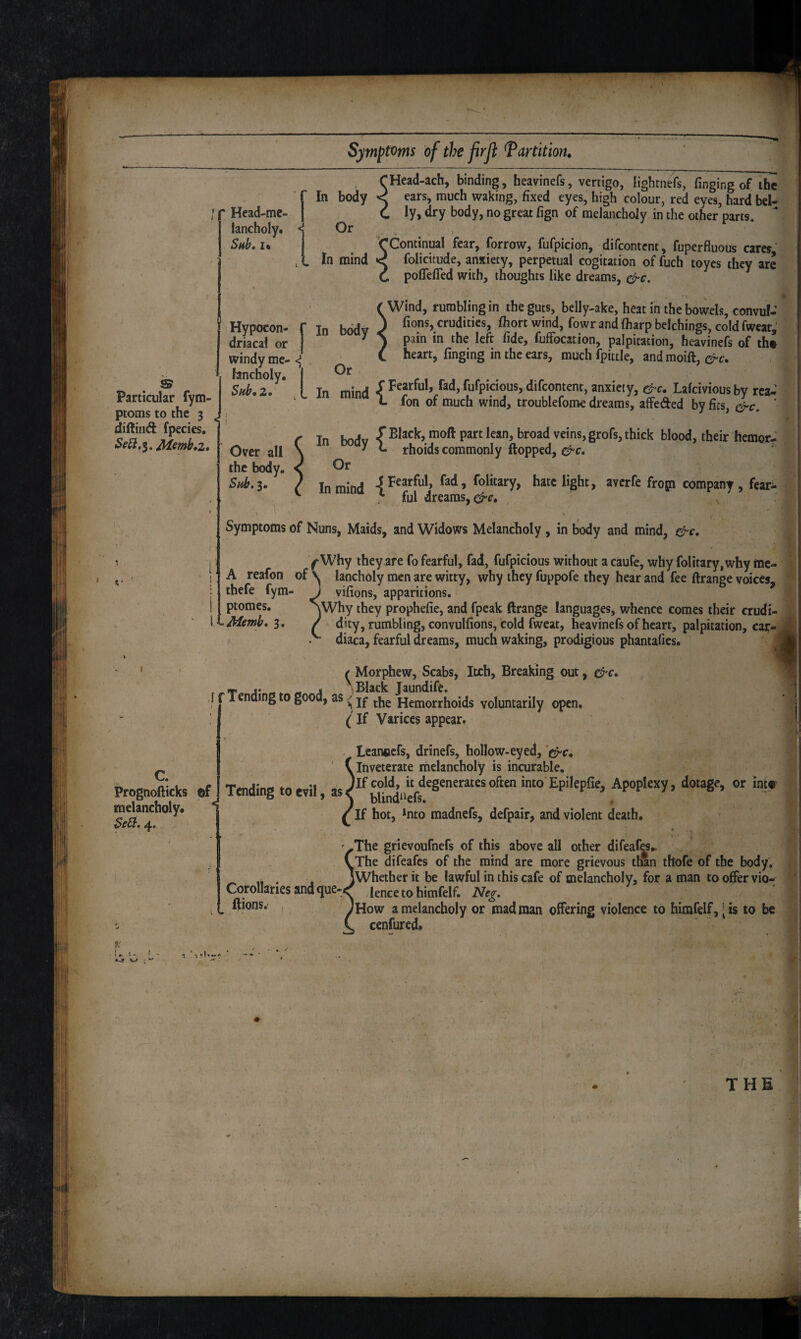 Symptoms of the first Partition.
Particular ſym-
ptoms to the 3
diſtinct ſpecies.
Sect.3. Memb.2.
Head-me-
lancholy.
Sub. 1.
In body
Head-ach, binding, heavineſs, vertigo, lightneſs, ſinging of the
ears, much waking, fixed eyes, high colour, red eyes, hard bel-
ly, dry body, no great ſign of melancholy in the other parts.
Or
In mind
Continual fear, ſorrow, ſuſpicion, diſcontent, ſuperfluous cares,
ſolicitude, anxiety, perpetual cogitation of ſuch toyes they are
poſſeſſed with, thoughts like dreams, &c.
Hypocon-
driacal or
windy me-
lancholy.
Sub. 2.
In body
Wind, rumbling in the guts, belly-ake, heat in the bowels, convul-
ſions, crudities, ſhort wind, ſowr and ſharp belchings, cold ſweat,
pain in the left ſide, ſuffocation, palpitation, heavineſs of the
heart, ſinging in the ears, much ſpittle, and moiſt, &c.
Or
In mind
Fearful, ſad, ſuſpicious, diſcontent, anxiety, &c. Laſcivious by rea-
ſon of much wind, troubleſome dreams, affected by fits, &c.
Over all
the body.
Sub. 3.
In body
Black, moſt part lean, broad veins, groſs, thick blood, their hemor-
rhoids commonly ſtopped, &c.
Or
In mind
Fearful, ſad, ſolitary, hate light, averſe from company, fear-
ful dreams, &c.
Symptoms of Nuns, Maids, and Widows Melancholy, in body and mind, &c.
A reaſon of
theſe ſym-
ptomes.
Memb. 3.
Why they are ſo fearful, ſad, ſuſpicious without a cauſe, why ſolitary, why me-
lancholy men are witty, why they ſuppoſe they hear and ſee ſtrange voices,
viſions, apparitions.
Why they propheſie, and ſpeak ſtrange languages, whence comes their crudi-
dity, rumbling, convulſions, cold ſweat, heavineſs of heart, palpitation, car-
diaca, fearful dreams, much waking, prodigious phantaſies.
C.
Prognoſticks of
melancholy.
Sect. 4.
Tending to good, as
Morphew, Scabs, Itch, Breaking out, &c.
Black Jaundiſe.
If the Hemorrhoids voluntarily open.
If Varices appear.
Tending to evil, as
Leanneſs, drineſs, hollow-eyed, &c.
Inveterate melancholy is incurable.
If cold, it degenerates often into Epilepſie, Apoplexy, dotage, or into
blindneſs.
If hot, into madneſs, deſpair, and violent death.
Corollaries and que-
ſtions.
The grievouſneſs of this above all other diſeaſes.
The diſeaſes of the mind are more grievous than thoſe of the body.
Whether it be lawful in this caſe of melancholy, for a man to offer vio-
lence to himſelf. Neg.
How a melancholy or mad man offering violence to himſelf, is to be
cenſured.
THE